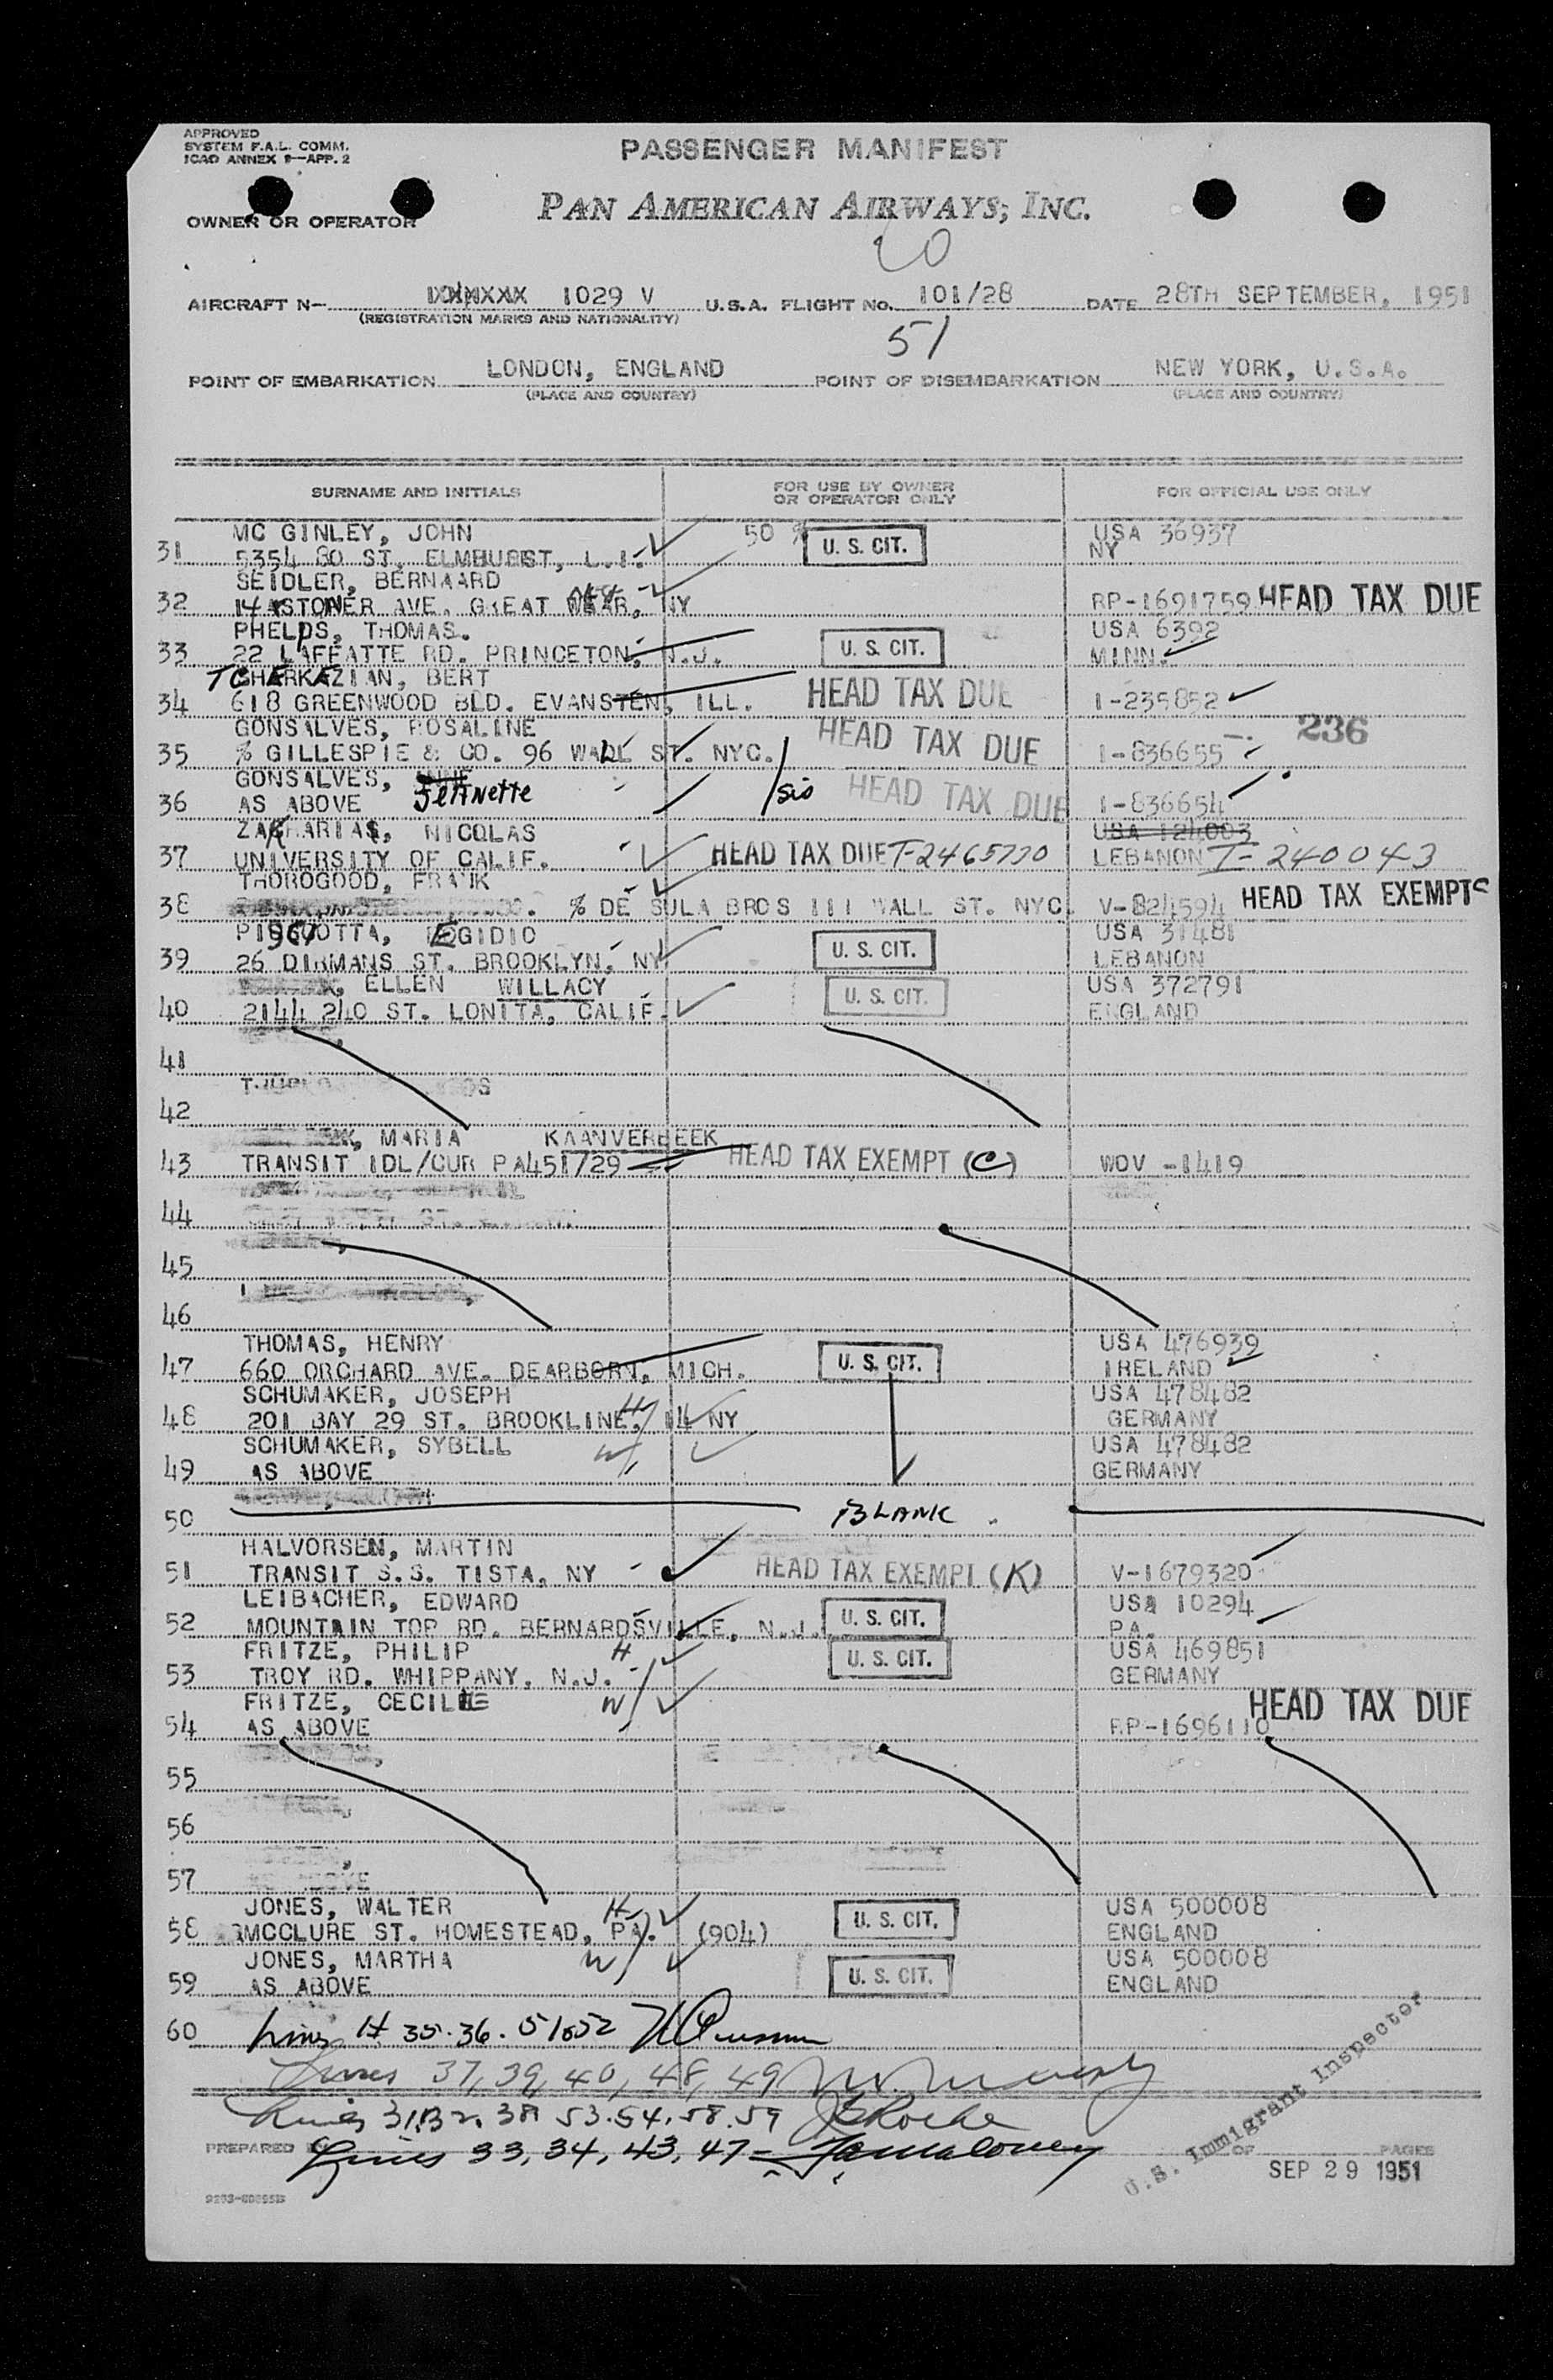 APPROVED
SYSTEM F.A.L. COMM.
ICAO ANNEX 9—APP. 2
PASSENGER MANIFEST
OWNER OR OPERATOR
PAN AMERICAN AIRWAYS, INC.
AIRCRAFT N— 1029 V U.S.A. FLIGHT No. 101/28 DATE 28TH SEPTEMBER, 1951
(REGISTRATION MARKS AND NATIONALITY)
51
POINT OF EMBARKATION LONDON, ENGLAND POINT OF DISEMBARKATION NEW YORK, U.S.A.
(PLACE AND COUNTRY) (PLACE AND COUNTRY)
SURNAME AND INITIALS FOR USE BY OWNER OR OPERATOR ONLY FOR OFFICIAL USE ONLY
MC GINLEY, JOHN 50 % USA 36937
31 5354 80 ST. ELMHURST, L.I. U. S. CIT. NY
SEIDLER, BERNAARD
32 14 STONER AVE. GREAT NY RP-1691759 HEAD TAX DUE
PHELPS, THOMAS. USA 6392
33 22 LAFFATTE RD. PRINCETON, N.J. U. S. CIT. MINN.
TCHERKEZIAN, BERT
34 618 GREENWOOD BLD. EVANSTEN, ILL. HEAD TAX DUE I-235852
GONSALVES, ROSALINE 236
35 % GILLESPIE & CO. 96 WALL ST. NYC. HEAD TAX DUE I-836655
GONSALVES, Jennette
36 AS ABOVE sis HEAD TAX DUE I-836654
ZAKHARIAS, NICOLAS USA 124003
37 UNIVERSITY OF CALIF. HEAD TAX DUE T-2465770 LEBANON I-240043
THOROGOOD, FRANK
38 % DE SULA BROS 111 WALL ST. NYC. V-824594 HEAD TAX EXEMPT
EGIDIO USA 31481
39 26 DIRMANS ST. BROOKLYN, NY U. S. CIT. LEBANON
ELLEN WILLACY USA 372791
40 2144 240 ST. LONITA, CALIF. U. S. CIT. ENGLAND
41
42
MARIA KAANVERBEEK
43 TRANSIT IDL/CUR PA451/29 HEAD TAX EXEMPT (C) WOV -1419
44
45
46
THOMAS, HENRY USA 476939
47 660 ORCHARD AVE. DEARBORN, MICH. U. S. CIT. IRELAND
SCHUMAKER, JOSEPH USA 478482
48 201 BAY 29 ST. BROOKLINE, 14 NY H GERMANY
SCHUMAKER, SYBELL USA 478482
49 AS ABOVE W GERMANY
50 BLANK
HALVORSEN, MARTIN
51 TRANSIT S.S. TISTA, NY HEAD TAX EXEMPT (K) V-1679320
LEIBACHER, EDWARD USA 10294
52 MOUNTAIN TOP RD. BERNARDSVILLE, N.J. U. S. CIT. PA.
FRITZE, PHILIP H USA 469851
53 TROY RD. WHIPPANY, N.J. U. S. CIT. GERMANY
FRITZE, CECILIE W HEAD TAX DUE
54 AS ABOVE RP-1696110
55
56
57
JONES, WALTER H USA 500008
58 MCCLURE ST. HOMESTEAD, PA. (904) U. S. CIT. ENGLAND
JONES, MARTHA W USA 500008
59 AS ABOVE U. S. CIT. ENGLAND
60 Lines 35. 36. 51 52
Lines 37, 39, 40, 48, 49
Lines 31, 32, 38 53. 54. 58. 59 Roche
PREPARED BY Lines 33, 34, 43, 47 - Maloney
U.S. Immigrant Inspector
OF PAGES
SEP 29 1951